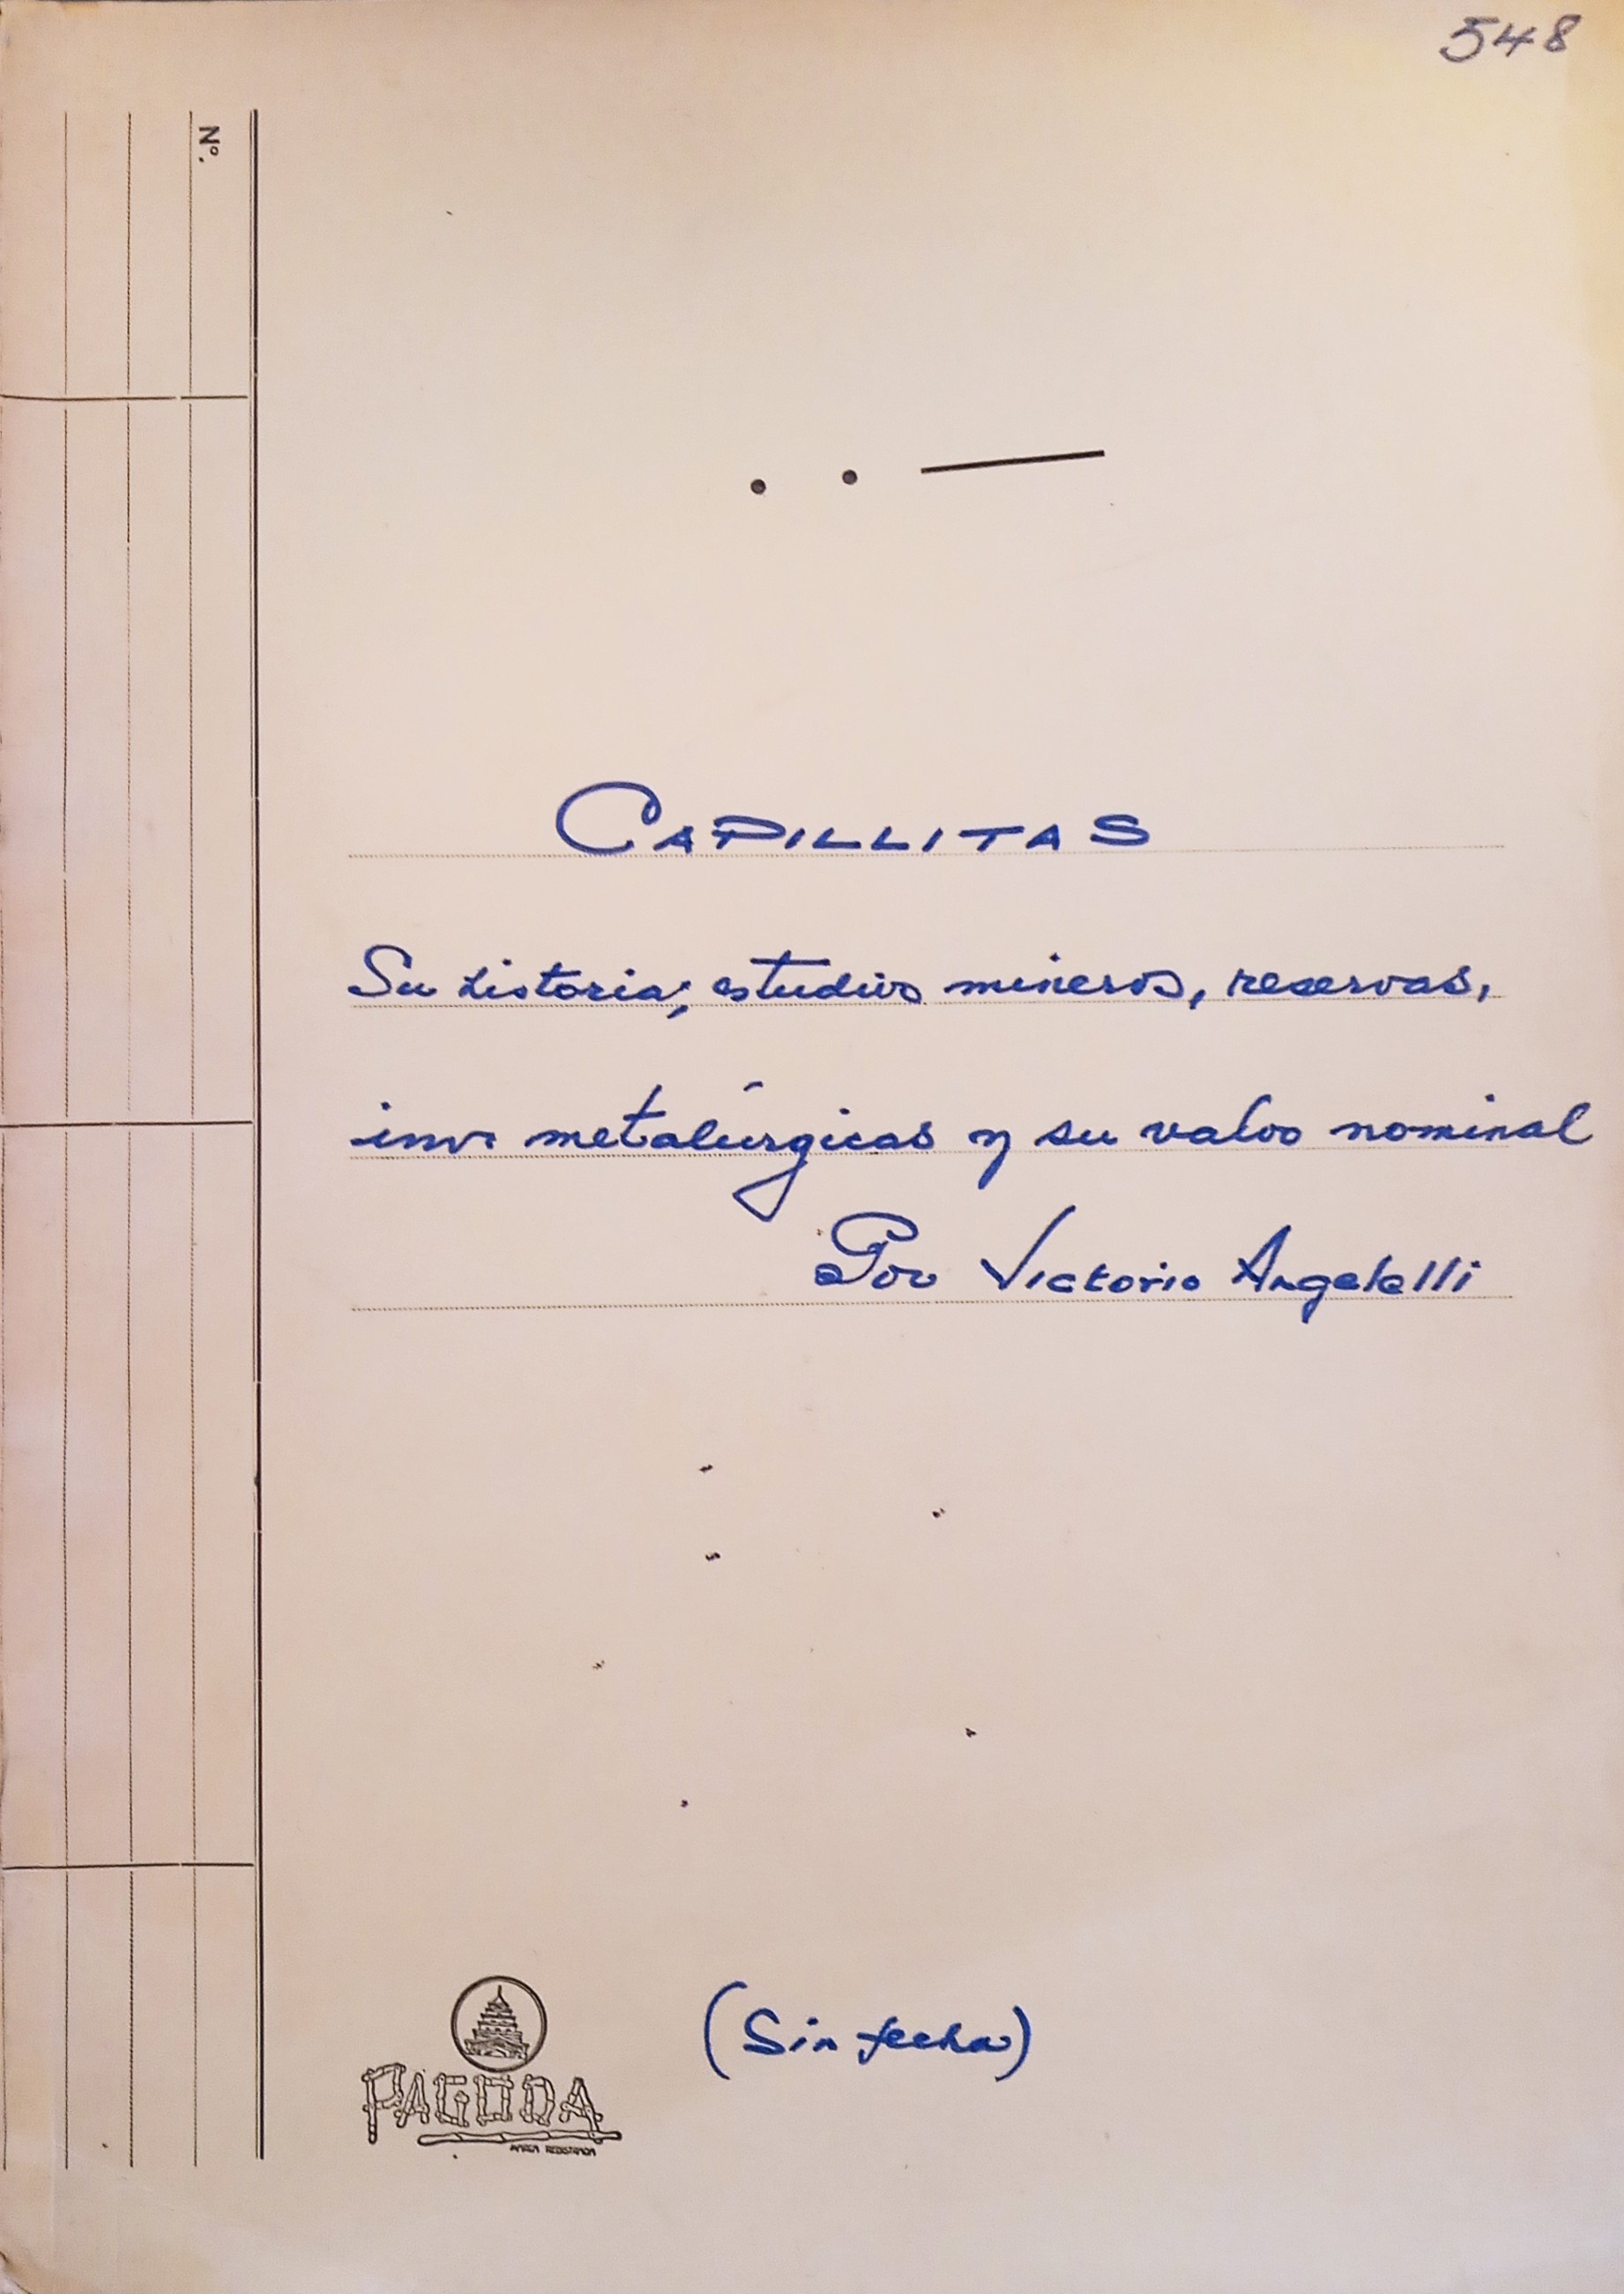 548
Nº.
CAPILLITAS
Su historia; estudios mineros, reservas,
inv. metalúrgicas y su valor nominal
Por Victorio Angelelli
(Sin fecha)
PAGODA
MARCA REGISTRADA